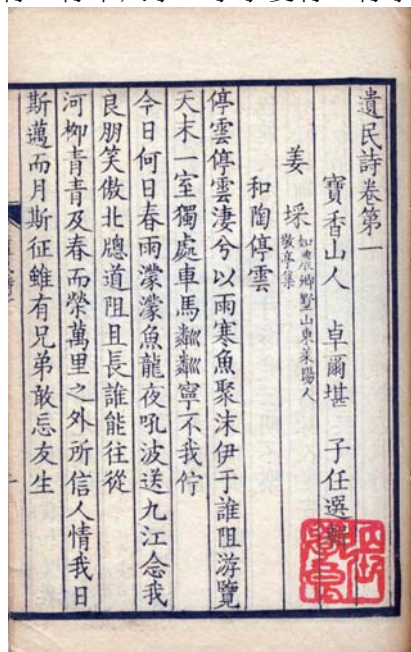 遺民詩卷第一
寶香山人 卓爾堪 子任選輯
姜埰 如農鄉墅山東萊陽人 敬亭集
和陶停雲
停雲停雲淒兮以雨寒魚聚沫伊于誰阻游覽
天末一室獨處車馬粼粼寧不我佇
今日何日春雨濛濛魚龍夜吼波送九江念我
良朋笑傲北牕道阻且長誰能往從
河柳青青及春而榮萬里之外所信人情我日
斯邁而月斯征雖有兄弟敢忘友生